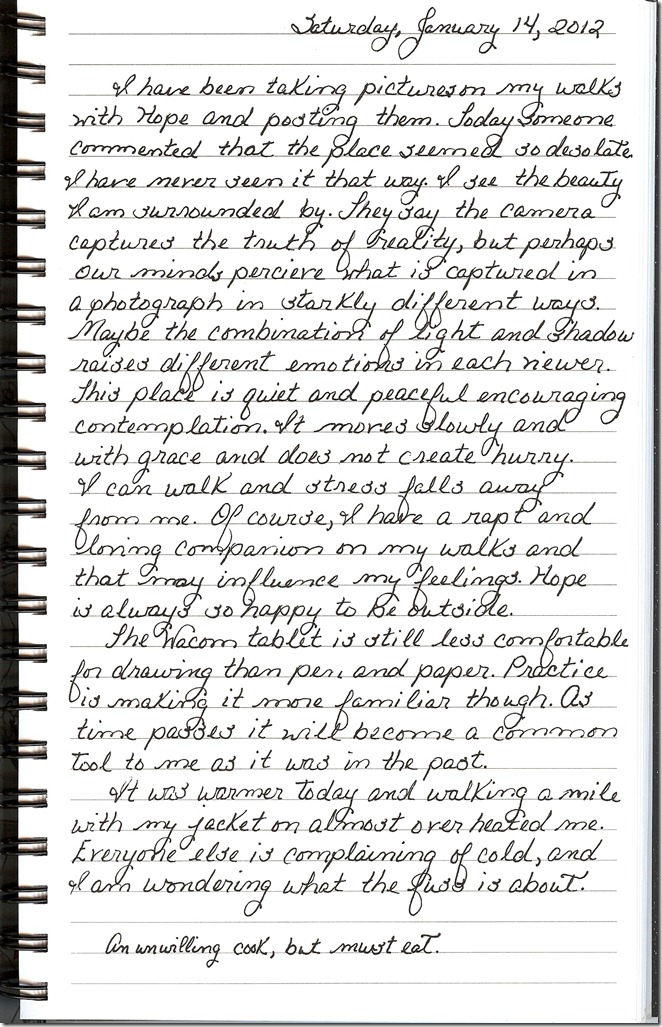 Saturday, January 14, 2012
I have been taking pictures on my walks
with Hope and posting them. Today someone
commented that the place seemed so desolate.
I have never seen it that way. I see the beauty
I am surrounded by. They say the camera
captures the truth of reality, but perhaps
our minds percieve what is captured in
a photograph in starkly different ways.
Maybe the combination of light and shadow
raises different emotions in each viewer.
This place is quiet and peaceful encouraging
contemplation. It moves slowly and
with grace and does not create hurry.
I can walk and stress falls away
from me. Of course, I have a rapt and
loving companion on my walks and
that may influence my feelings. Hope
is always so happy to be outside.
The Wacom tablet is still less comfortable
for drawing than pen and paper. Practice
is making it more familiar though. As
time passes it will become a common
tool to me as it was in the past.
It was warmer today and walking a mile
with my jacket on almost over heated me.
Everyone else is complaining of cold, and
I am wondering what the fuss is about.
An unwilling cook, but must eat.